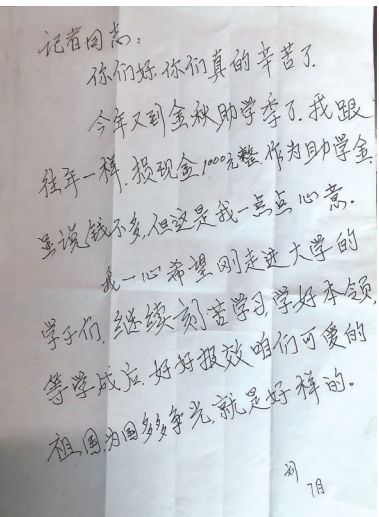 记者同志：
你们好，你们真的辛苦了．
今年又到金秋助学季了．我跟
往年一样．损现金1000元整．作为助学金
虽说钱不多，但这是我一点点心意．
我一心希望刚走进大学的
学子们，继续刻苦学习，学好本领，
等学成后．好好报效咱们可爱的
祖国，为国多多争光，就是好样的。
刘
7月